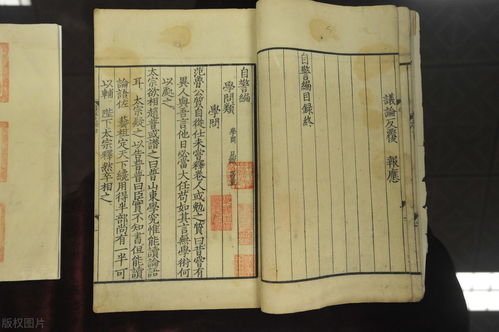 議論反覆 報應
自警編目録終
自警編
學問類
學問
范魯公質自從仕未嘗釋卷人或勉之質曰昔嘗有
異人與吾言他日必當大任苟如其言無學術何
以處之
太宗欲相趙普或譖之曰普山東學究惟能讀論語
耳 太宗疑之以告普普曰臣實不知書但能讀
論語佐 藝祖定天下纔用得半部尚有一半可
以輔 陛下太宗釋然卒相之
版权图片